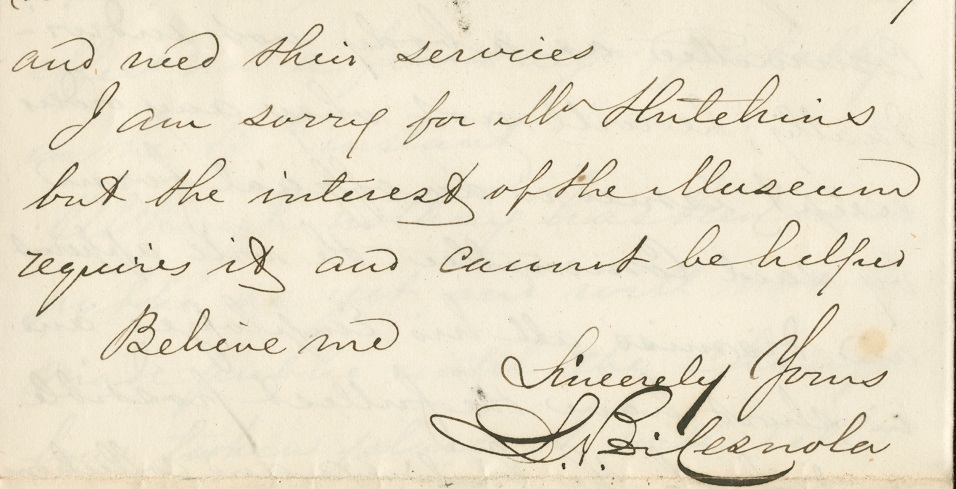 and need their services
I am sorry for Mr Hutchins
but the interest of the Museum
requires it and cannot be helped
Believe me
Sincerely Yours
L. P. di Cesnola